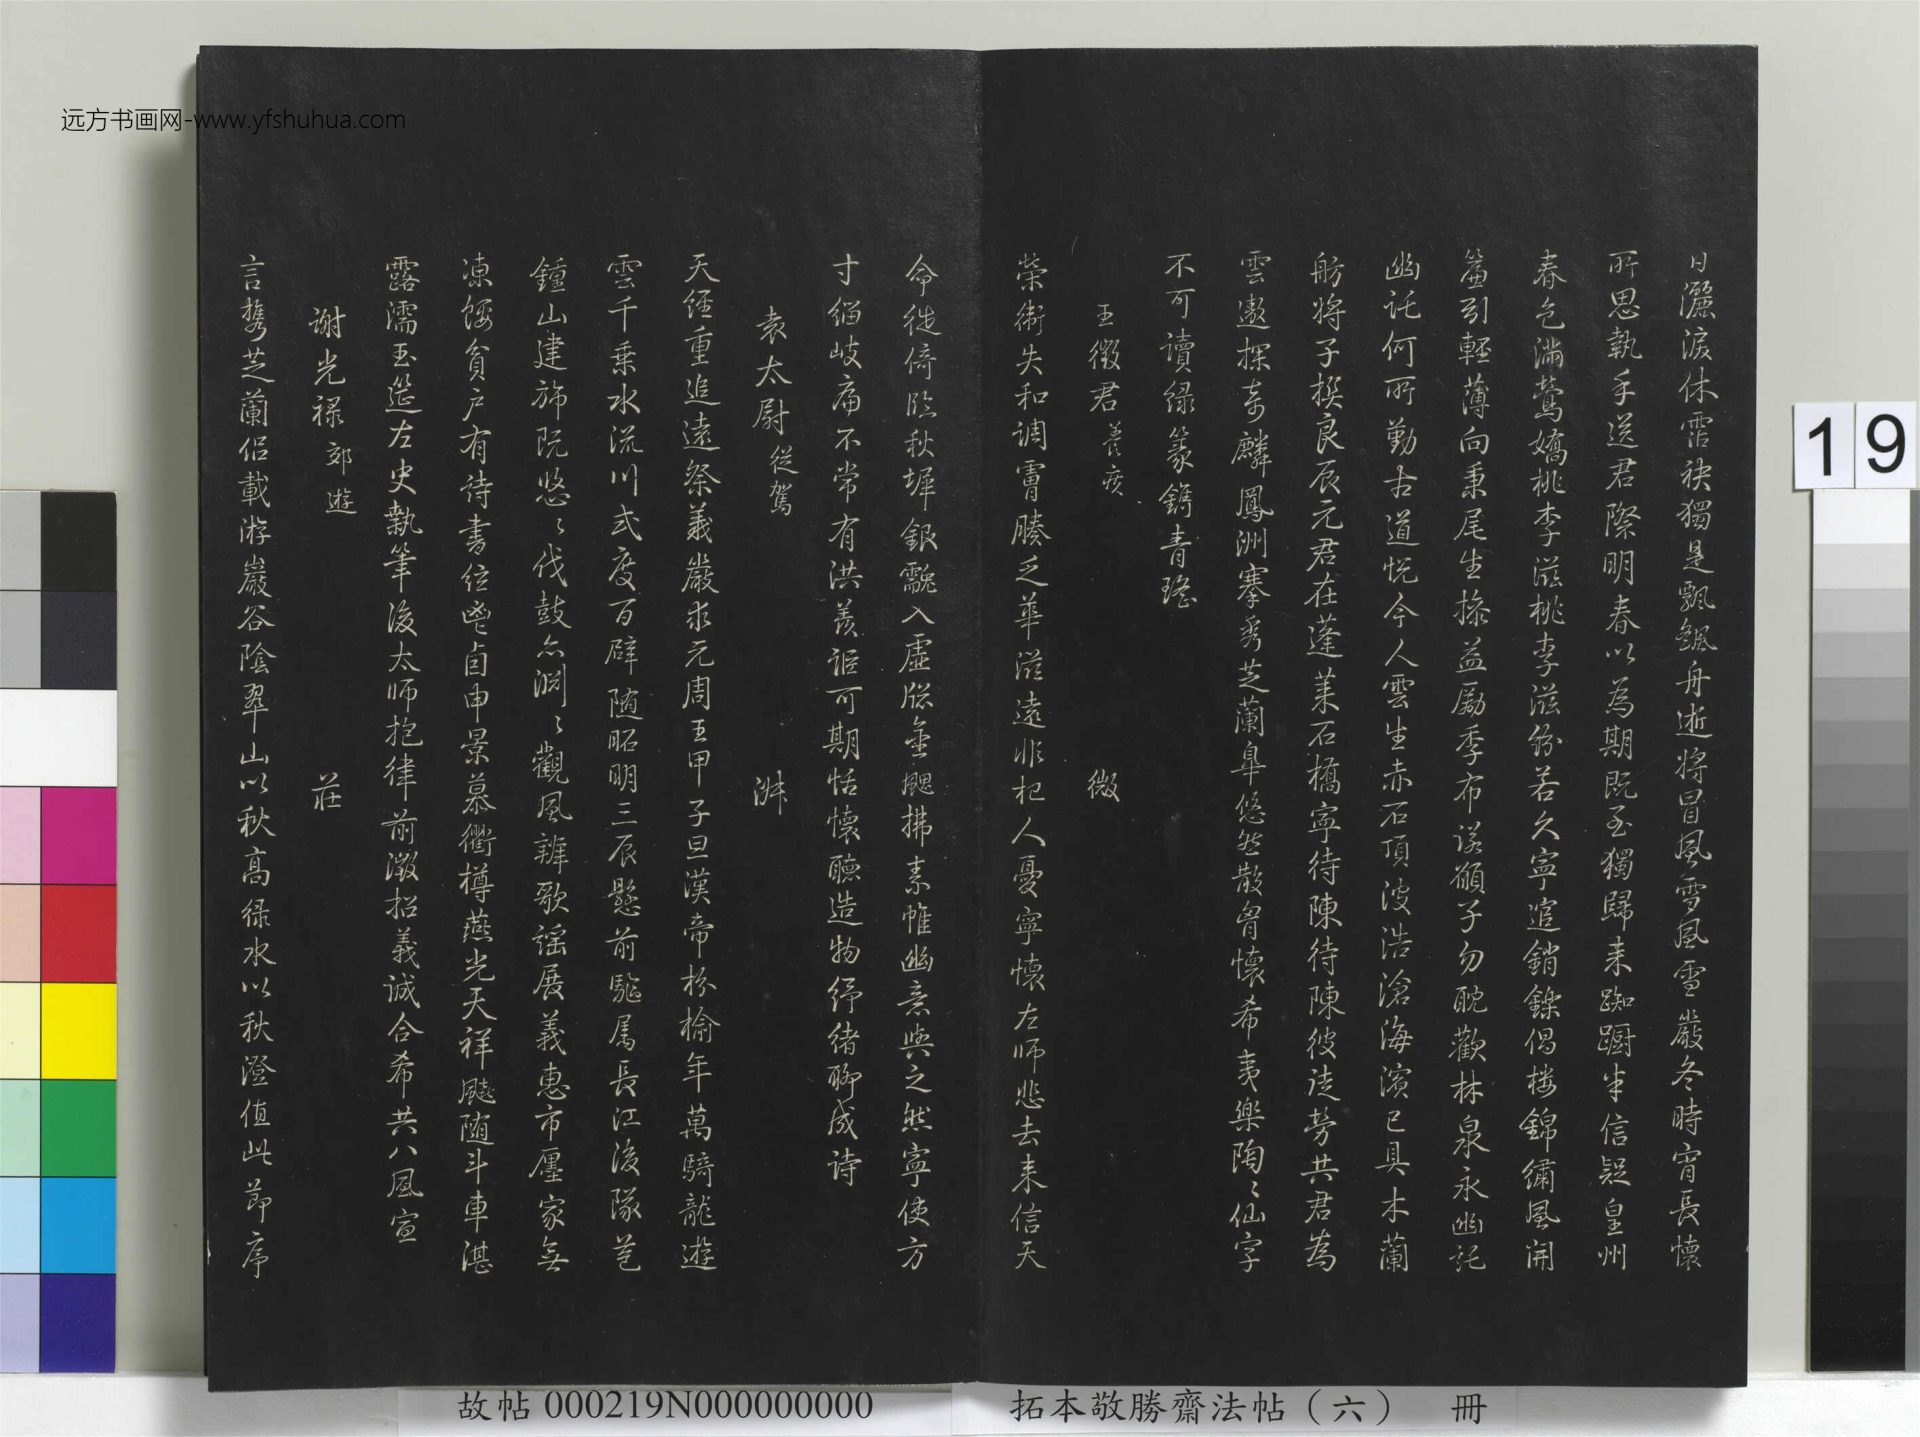 远方书画网-www.yfshuhua.com
日灑淚休霑袂獨是飄飄舟逝將冒風雪風雪嚴冬時宵長懷
所思執手送君際明春以為期既至獨歸來踟躕未信疑皇州
春色滿鶯嬌桃李滋桃李滋紛若久寧逭銷鑠偈樓錦繡風開
簾引輕薄向秉尾生操益勵季布諾願子勿耽歡林泉永幽託
幽託何所勤古道悅今人雲生赤石頂波浩滄海濱已具木蘭
舫將子撰良辰元君在蓬萊石橋寧待陳待陳彼徒勞共君為
雲遨探奇麟鳳洲搴秀芝蘭皐悠然散胷懷希夷樂陶〻仙字
不可讀綠篆鐫青瑤
王徵君養疾 微
榮衛失和調膏腠乏華滋遠非杞人憂寧懷左師悲去來信天
命徙倚臨秋墀銀靏入虛牕金颸拂素帷幽意與之然寧使方
寸緇岐扁不常有洪羨詎可期恬懷聽造物紓緒聊成詩
袁太尉從駕 淑
天經重追遠祭義嚴求元周王甲子旦漢帝枌榆年萬騎龍遊
雲千乘水流川式度百辟随昭明三辰懸前驅属長江後隊苞
鍾山建斾阮悠〻伐鼓亦淵〻觀風辨歌謡展義惠市廛家無
凍餒貧户有詩書位鬯卣申景慕衢樽燕光天祥飈随斗車湛
露濡玉筵左史執筆後太師抱律前澂招義誠合希共八風宣
謝光禄郊遊 莊
言攜芝蘭侣載游巖谷陰翠山以秋高緑水以秋澄值此節序
19
故帖 000219N000000000
拓本敬勝齋法帖（六） 冊